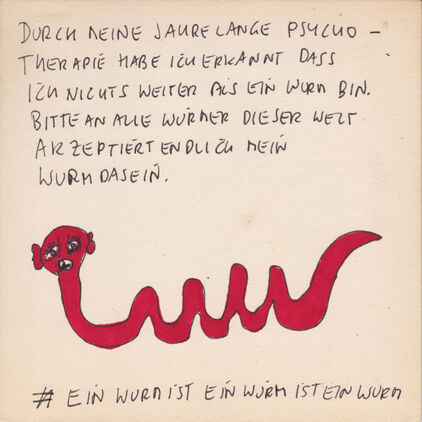 DURCH MEINE JAHRELANGE PSYCHO-
THERAPIE HABE ICH ERKANNT DASS
ICH NICHTS WEITER ALS EIN WURM BIN.
BITTE AN ALLE WÜRMER DIESER WELT
AKZEPTIERT ENDLICH MEIN
WURMDASEIN.
# EIN WURM IST EIN WURM IST EIN WURM